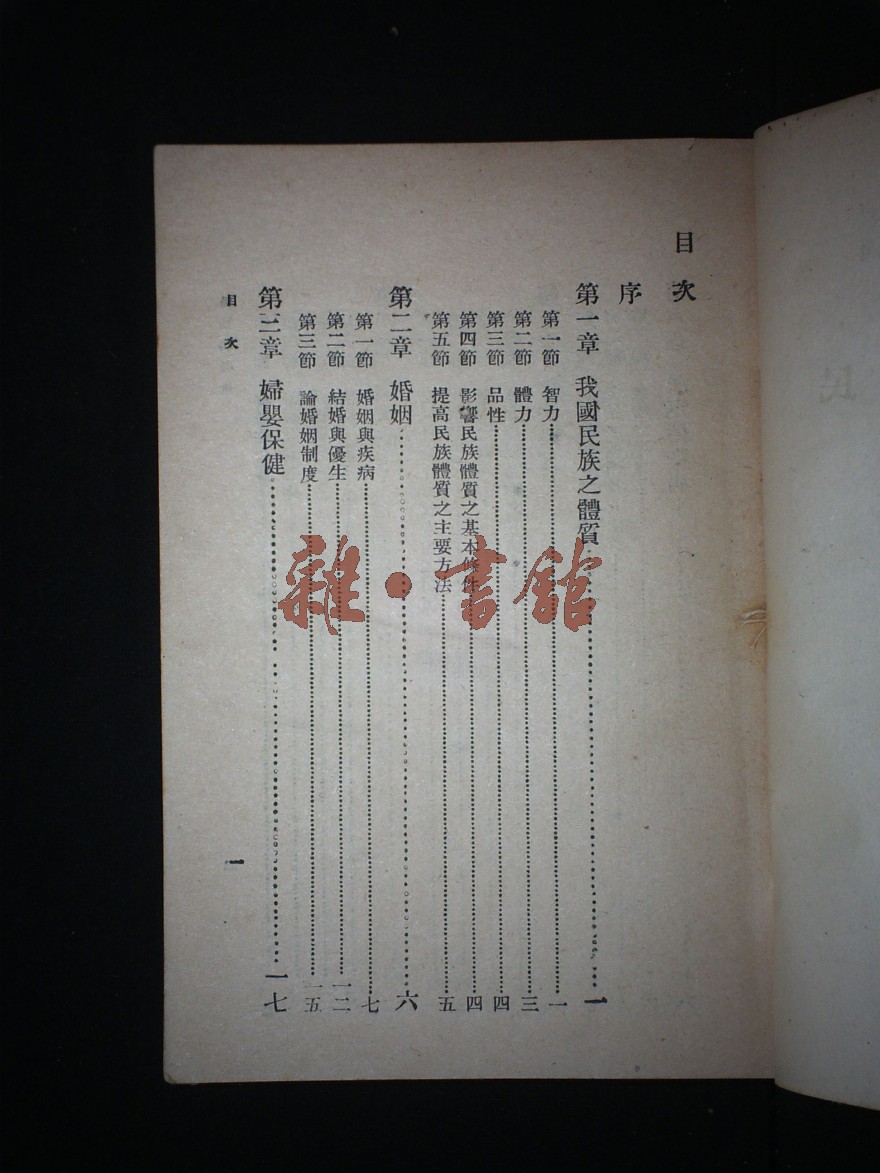 目次
序
第一章 我國民族之體質……一
第一節 智力……一
第二節 體力……三
第三節 品性……四
第四節 影響民族體質之基本條件……四
第五節 提高民族體質之主要方法……五
第二章 婚姻……六
第一節 婚姻與疾病……七
第二節 結婚與優生……一二
第三節 論婚姻制度……一五
第三章 婦嬰保健……一七
目次 一
雜·書館
民